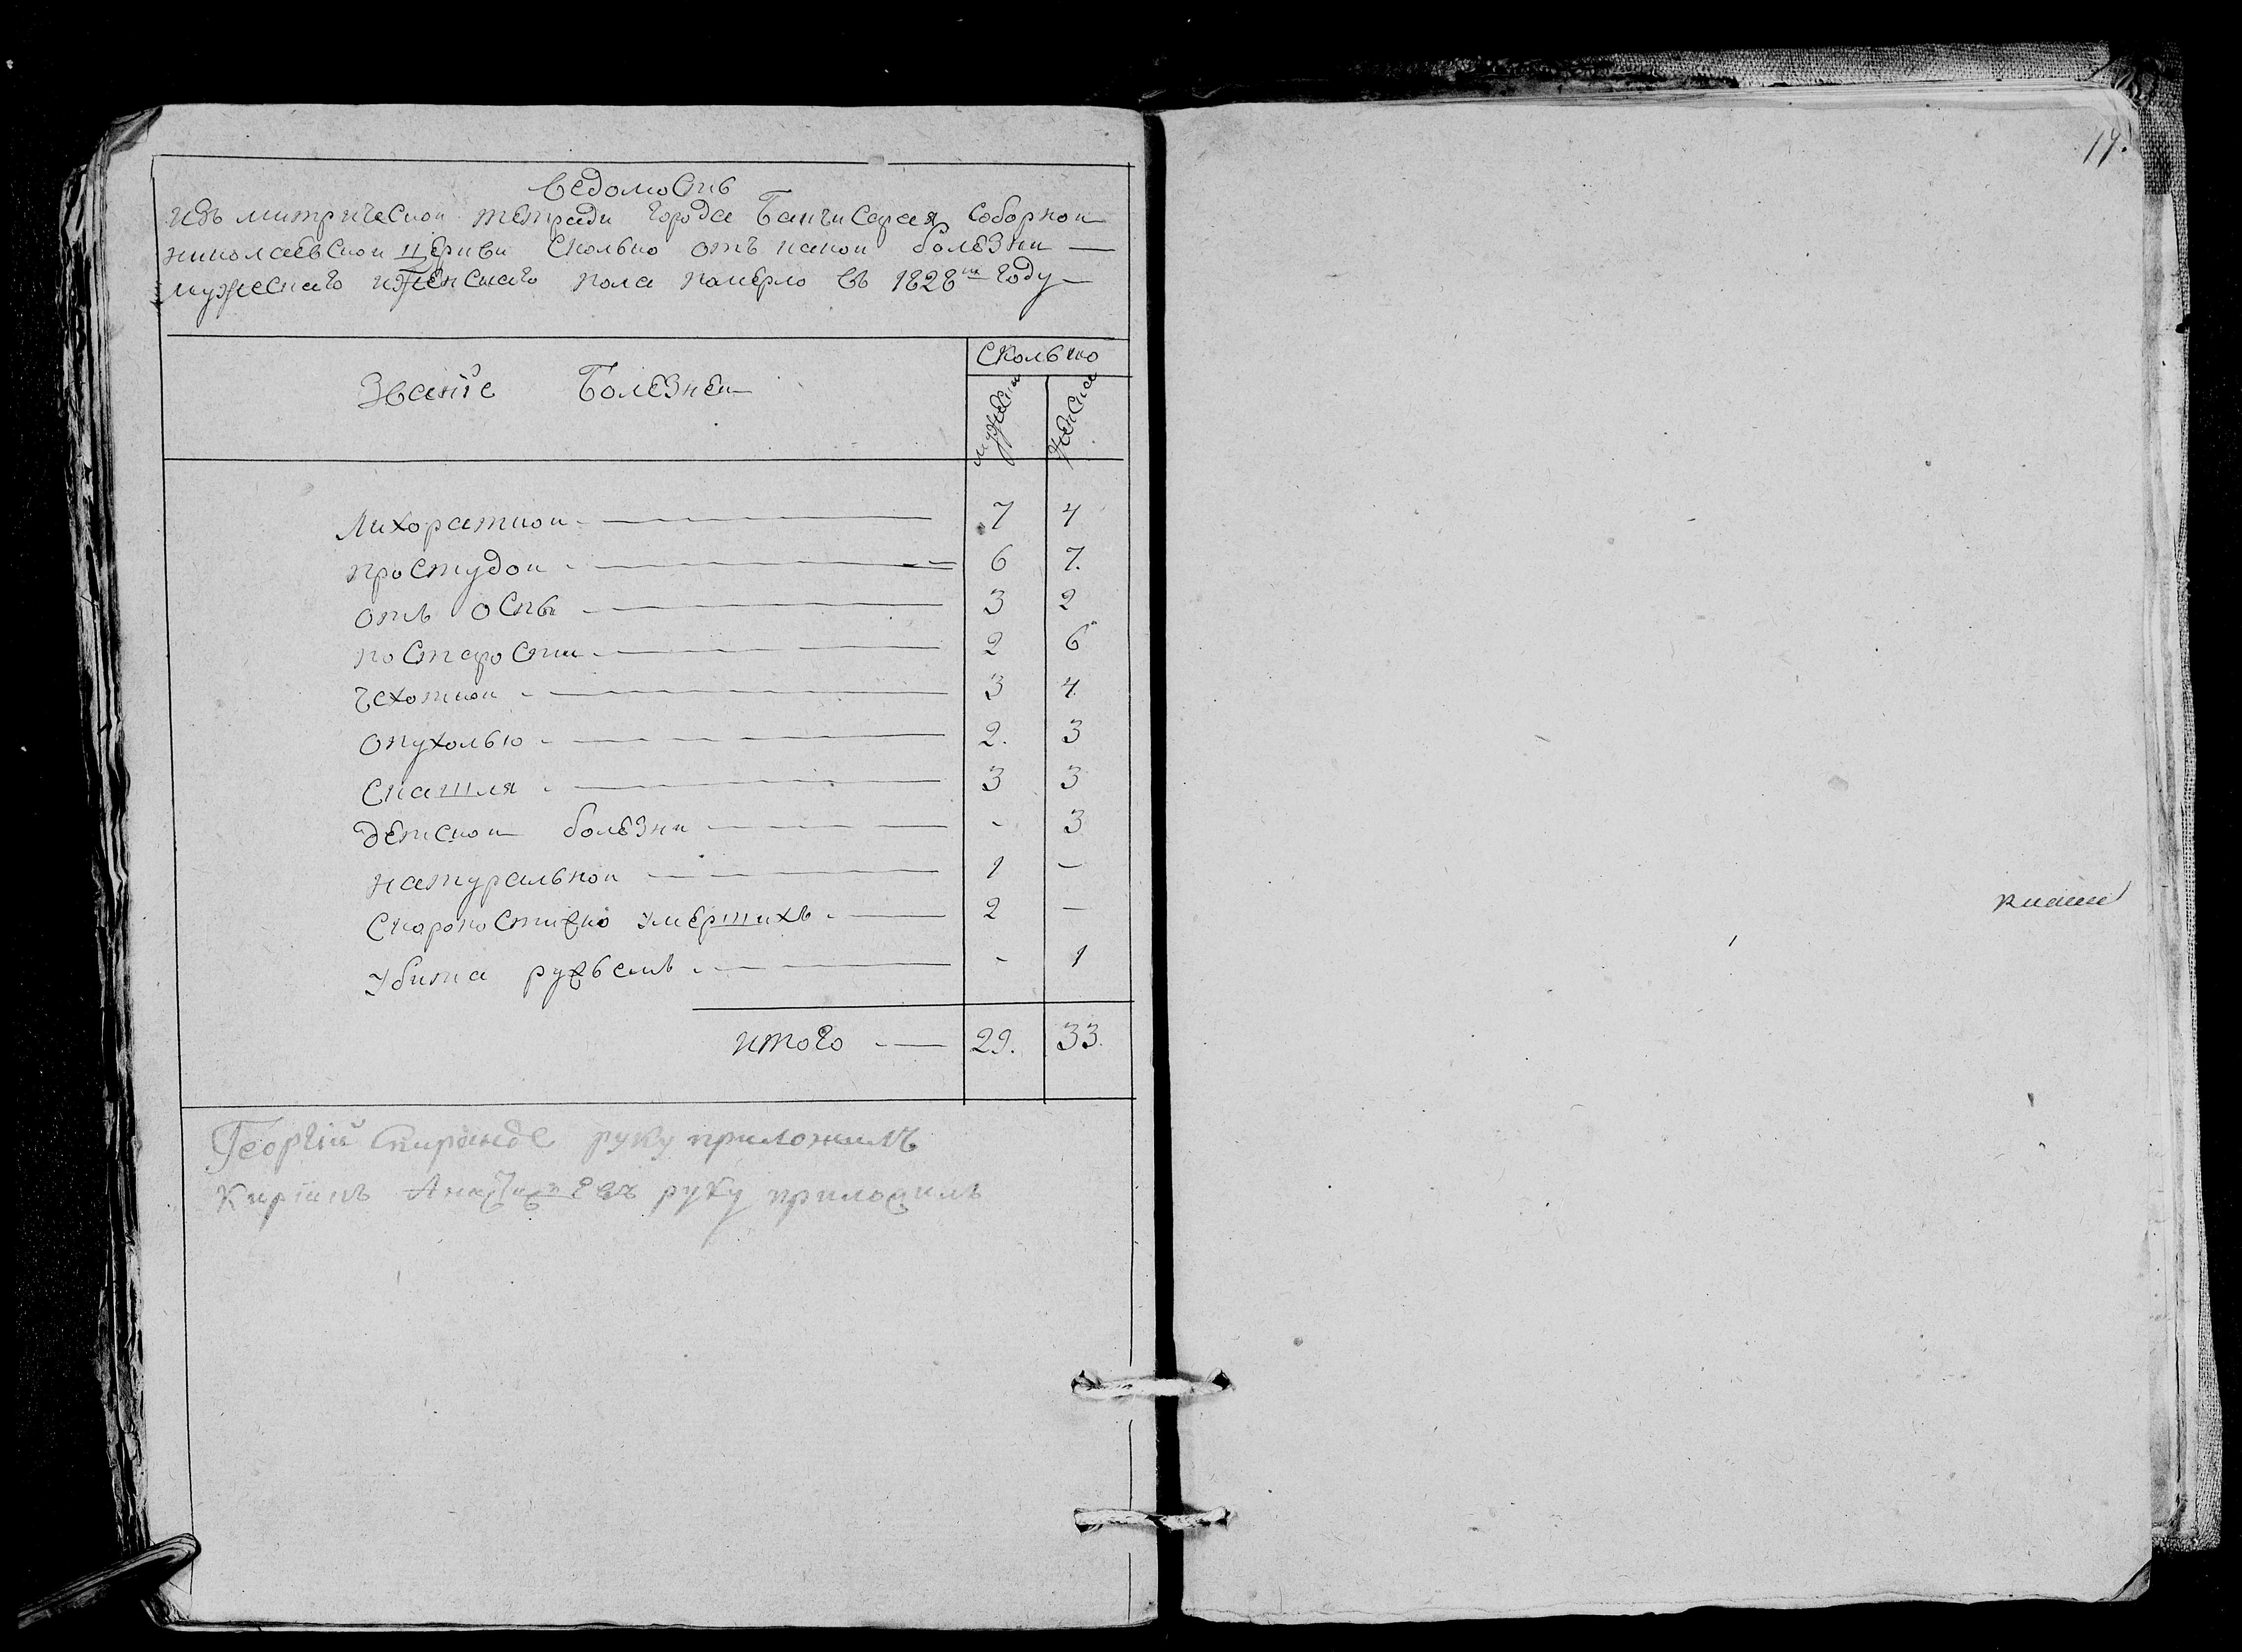 Ведомость
изъ митрической тетради города Бакчисарая соборной
николаевской церкви сколько отъ какой болезни —
мужескаго и женскаго пола померло въ 1828м году —
Званіе Болезней
Сколько
мужеска
женска
Лихораткой 7 4
простудой 6 7.
отъ оспы 3 2
по старости 2 6
чехоткой 3 4
опухолью 2. 3
скашля 3 3
детской болезни - 3
натуральной 1 —
скоропостижно умершихъ 2 —
убита ружьемъ - 1
итого 29. 33.
Георгій руку приложилъ
руку приложилъ